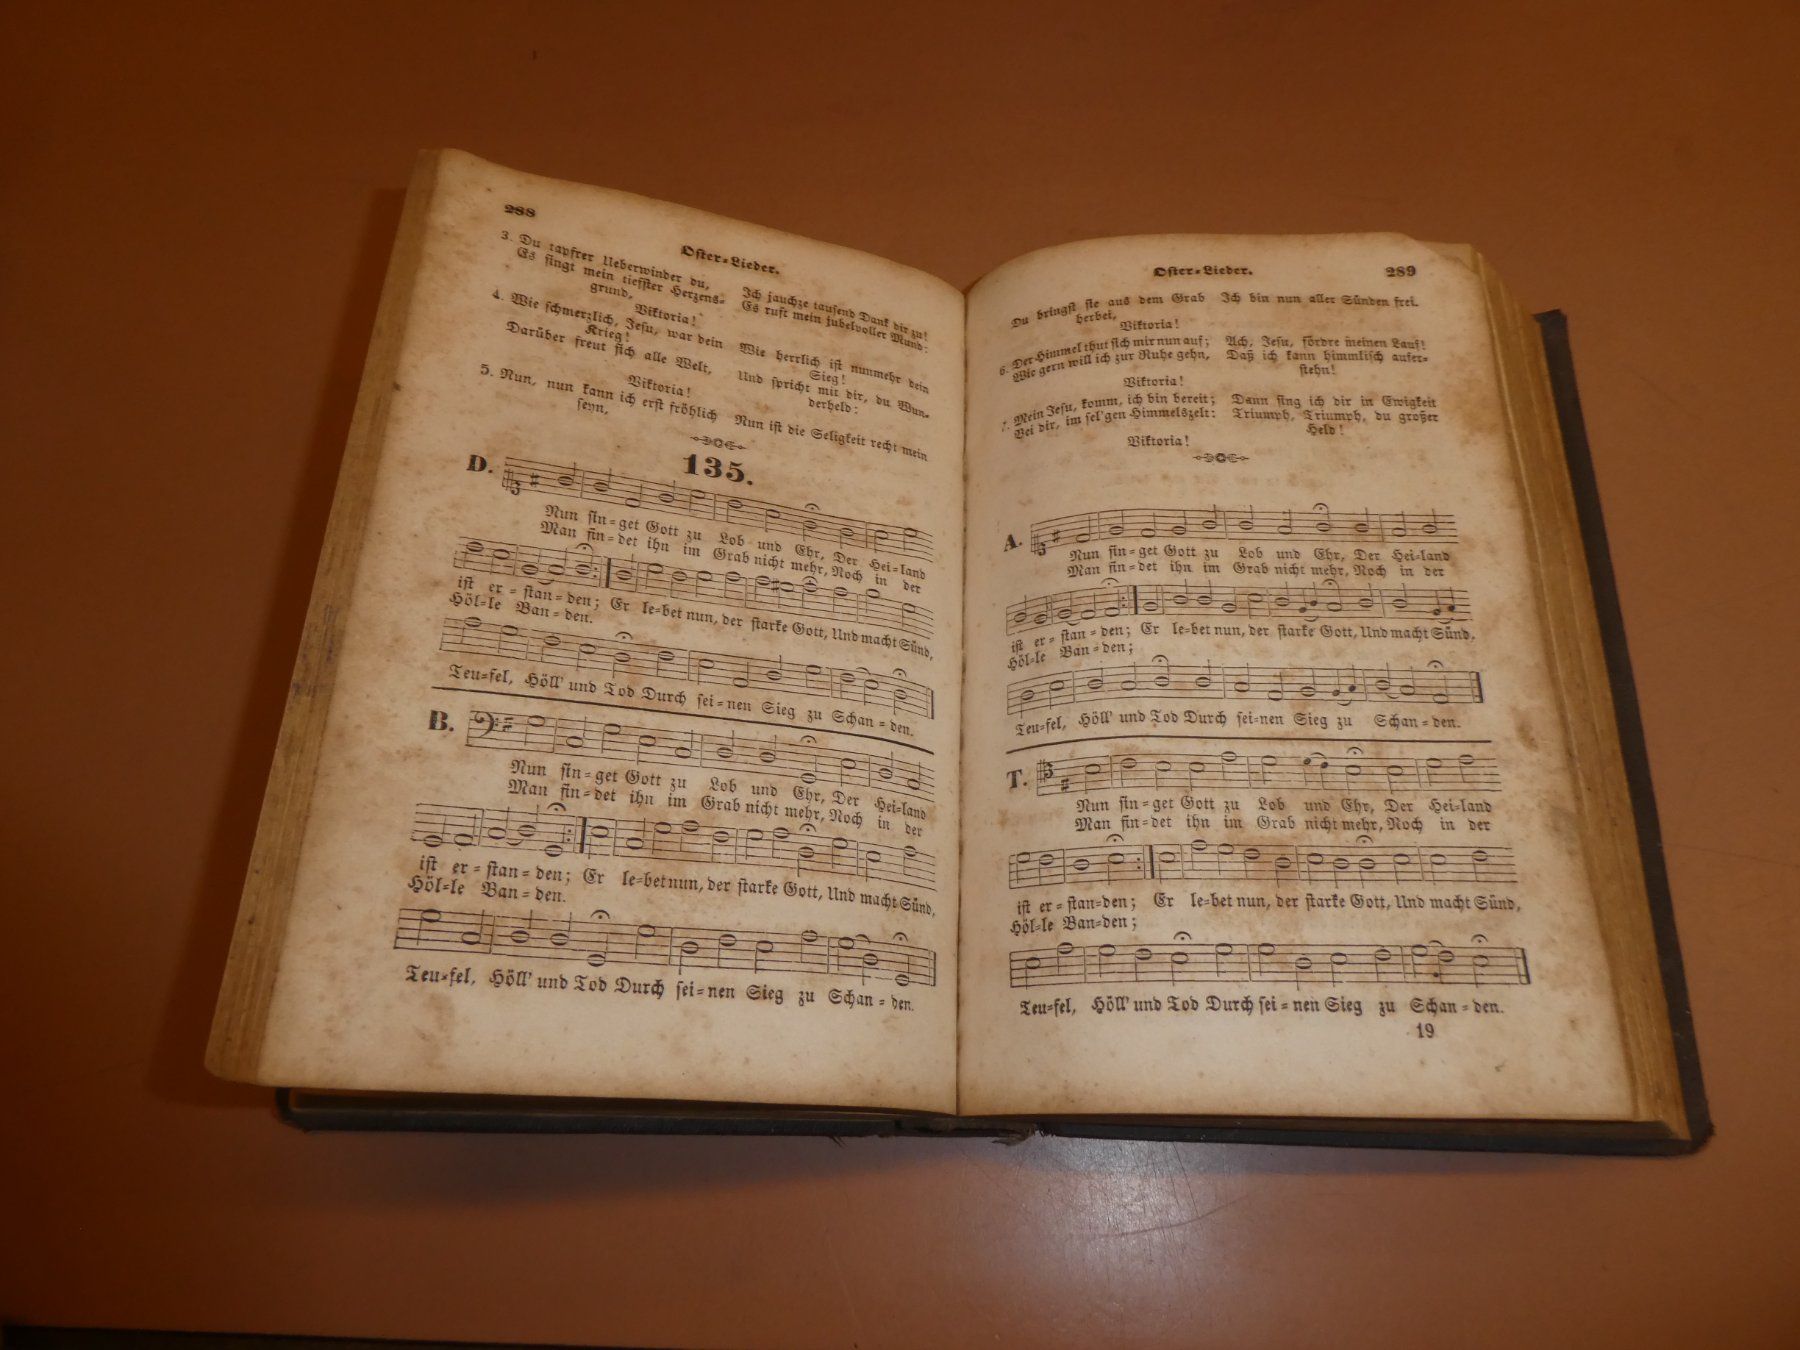 288
Oster-Lieder.
3. Du tapfrer Ueberwinder du,
Es singt mein tiefster Herzens-
grund,
Viktoria!
Ich jauchze tausend Dank dir zu!
Es ruft mein jubelvoller Mund:
4. Wie schmerzlich, Jesu, war dein
Krieg!
Darüber freut sich alle Welt,
Viktoria!
Wie herrlich ist nunmehr dein
Sieg!
Und spricht mit dir, du Wun-
derheld:
5. Nun, nun kann ich erst fröhlich
seyn,
Nun ist die Seligkeit recht mein
135.
D.
Nun sin-get Gott zu Lob und Ehr, Der Hei-land
Man fin-det ihn im Grab nicht mehr, Noch in der
ist er-stan-den; Er le-bet nun, der starke Gott, Und macht Sünd,
Höl-le Ban-den.
Teu-fel, Höll' und Tod Durch sei-nen Sieg zu Schan-den.
B.
Nun sin-get Gott zu Lob und Ehr, Der Hei-land
Man fin-det ihn im Grab nicht mehr, Noch in der
ist er-stan-den; Er le-bet nun, der starke Gott, Und macht Sünd,
Höl-le Ban-den.
Teu-fel, Höll' und Tod Durch sei-nen Sieg zu Schan-den.
Oster-Lieder.
289
Du bringst sie aus dem Grab
herbei,
Viktoria!
Ich bin nun aller Sünden frei.
6. Der Himmel thut sich mir nun auf;
Wie gern will ich zur Ruhe gehn,
Viktoria!
Ach, Jesu, fördre meinen Lauf!
Daß ich kann himmlisch aufer-
stehn!
7. Mein Jesu, komm, ich bin bereit;
Bei dir, im sel'gen Himmelszelt:
Viktoria!
Dann sing ich dir in Ewigkeit
Triumph, Triumph, du großer
Held!
A.
Nun sin-get Gott zu Lob und Ehr, Der Hei-land
Man fin-det ihn im Grab nicht mehr, Noch in der
ist er-stan-den; Er le-bet nun, der starke Gott, Und macht Sünd,
Höl-le Ban-den;
Teu-fel, Höll' und Tod Durch sei-nen Sieg zu Schan-den.
T.
Nun sin-get Gott zu Lob und Ehr, Der Hei-land
Man fin-det ihn im Grab nicht mehr, Noch in der
ist er-stan-den; Er le-bet nun, der starke Gott, Und macht Sünd,
Höl-le Ban-den;
Teu-fel, Höll' und Tod Durch sei-nen Sieg zu Schan-den.
19